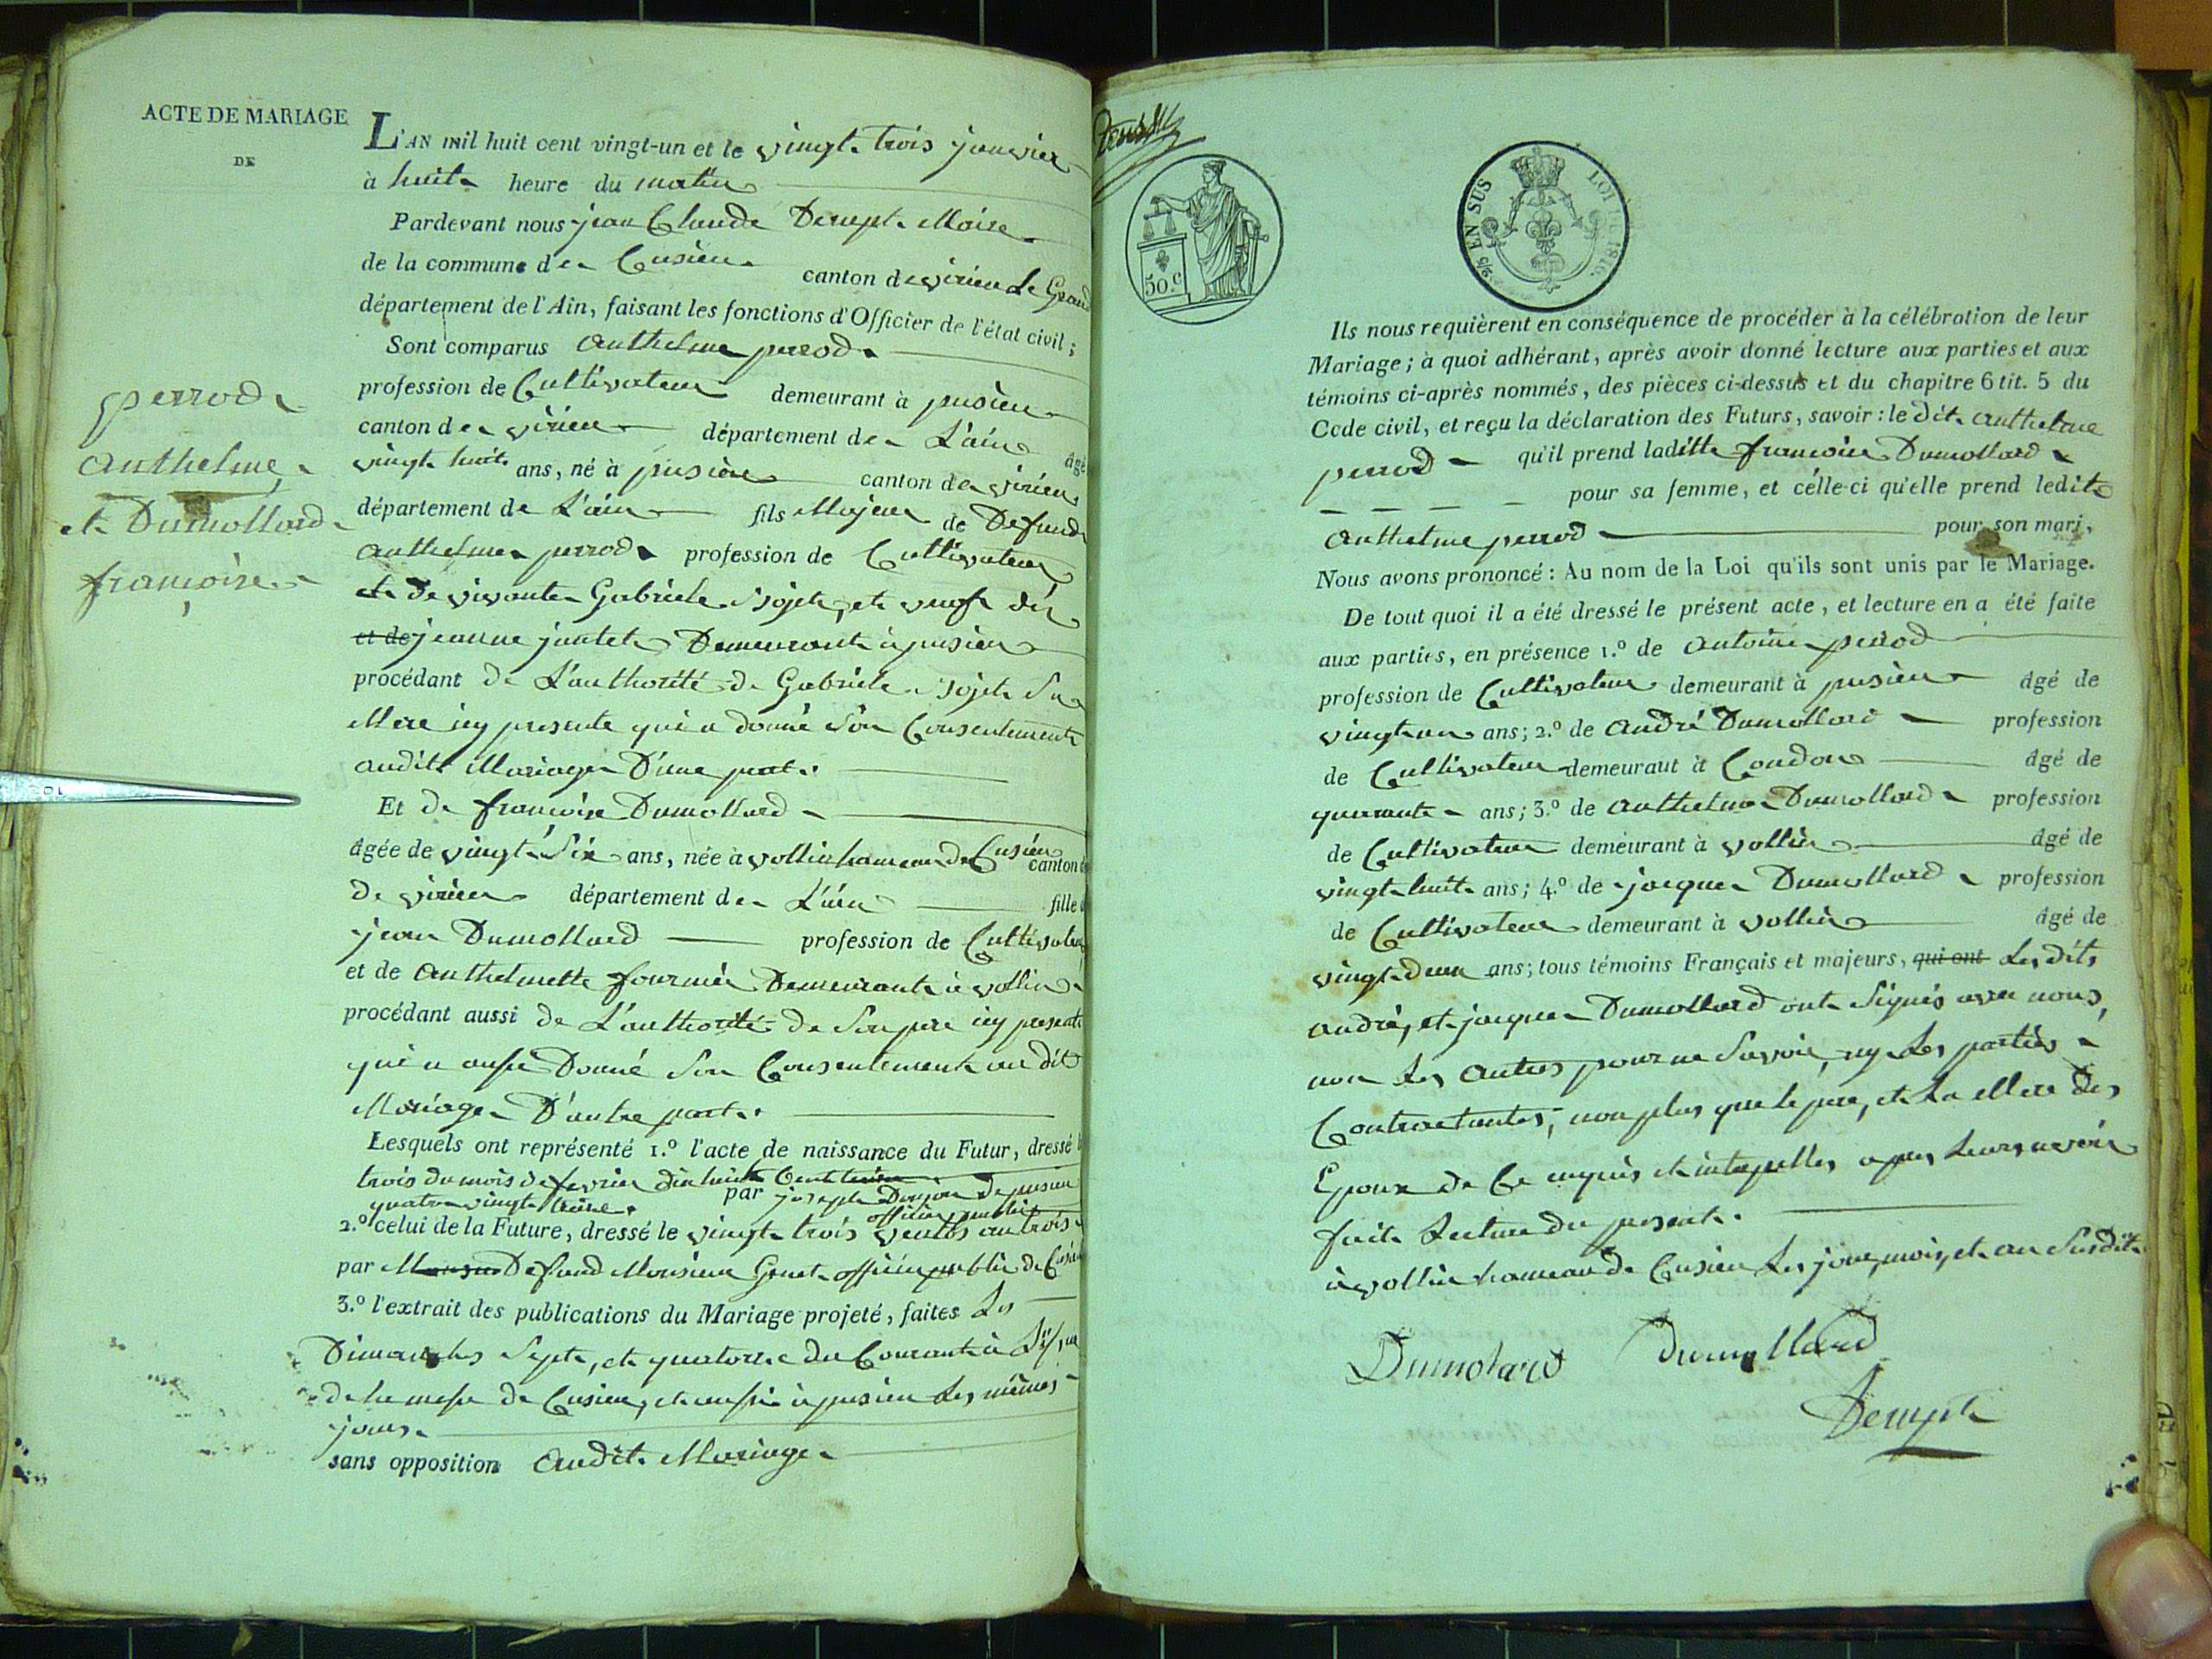 ACTE DE MARIAGE
DE
perrod
anthelme
et Dumollard
françoise
L'AN mil huit cent vingt-un et le vingt trois janvier
à huit heure du matin
Pardevant nous jean Claude Dempt Maire
de la commune de Cusieu canton de virieu Le Grand
département de l'Ain, faisant les fonctions d'Officier de l'état civil ;
Sont comparus anthelme perrod
profession de Cultivateur demeurant à pusieu
canton de virieu département de L'ain âgé
vingt huit ans, né à pusieu canton de virieu
département de L'ain fils Majeur de Defunt
anthelme perrod profession de Cultivateur
et de vivante Gabriele et veuf de
et de jeanne juntet Demeurant à pusieu
procédant de L'authorité de Gabriele Sa
Mere icy presente qui a donné son Consentement
audit Mariage D'une part.
Et de françoise Dumollard
âgée de vingt Six ans, née à vollin hameau de Cusieu canton
de virieu département de L'ain fille
jean Dumollard profession de Cultivateur
et de anthelmette fournier Demeurant à vollin
procédant aussi de L'authorité de Son pere icy present
qui a aussi Donné Son Consentement au dit
Mariage D'autre part.
Lesquels ont représenté 1.º l'acte de naissance du Futur, dressé
trois du mois de fevrier dix huit Cent treize
quatre vingt treize. par joseph Donjon de pusieu
officier public
2.º celui de la Future, dressé le vingt trois ventôs an trois
par Monsieur Defund Monsieur officier public de Cusieu
3.º l'extrait des publications du Mariage projeté, faites Les
Dimanches Sept, et quatorze du Courant à L'issue
de la messe de Cusieu, et aussi à pusieu Les mêmes
jours
sans opposition audit Mariage
50.c
2/5 EN SUS
LOI DE 1816.
Ils nous requièrent en conséquence de procéder à la célébration de leur
Mariage ; à quoi adhérant, après avoir donné lecture aux parties et aux
témoins ci-après nommés, des pièces ci-dessus et du chapitre 6 tit. 5 du
Code civil, et reçu la déclaration des Futurs, savoir : le dit anthelme
perrod qu'il prend laditte françoise Dumollard
pour sa femme, et célle-ci qu'elle prend ledit
anthelme perrod pour son mari,
Nous avons prononcé : Au nom de la Loi qu'ils sont unis par le Mariage.
De tout quoi il a été dressé le présent acte, et lecture en a été faite
aux parties, en présence 1.º de antoine perrod
profession de Cultivateur demeurant à pusieu âgé de
vingt un ans ; 2.º de andré Dumollard profession
de Cultivateur demeurant à Condon âgé de
quarante ans ; 3.º de anthelme Dumollard profession
de Cultivateur demeurant à vollin âgé de
vingt huit ans ; 4.º de jacque Dumollard profession
de Cultivateur demeurant à vollin âgé de
vingt deux ans ; tous témoins Français et majeurs, qui ont Les dits
andré, et jacque Dumollard ont Signés avec nous,
non Les autres pour ne Savoir, ny Les parties
Contractantes, non plus que le pere, et La Mere des
Epoux de Ce enquis et interpelles apres Leurs avoir
fait Lecture du present.
à vollin hameau de Cusieu Les jour, mois, et an Susdit
Dumolard Dumollard
Dempt